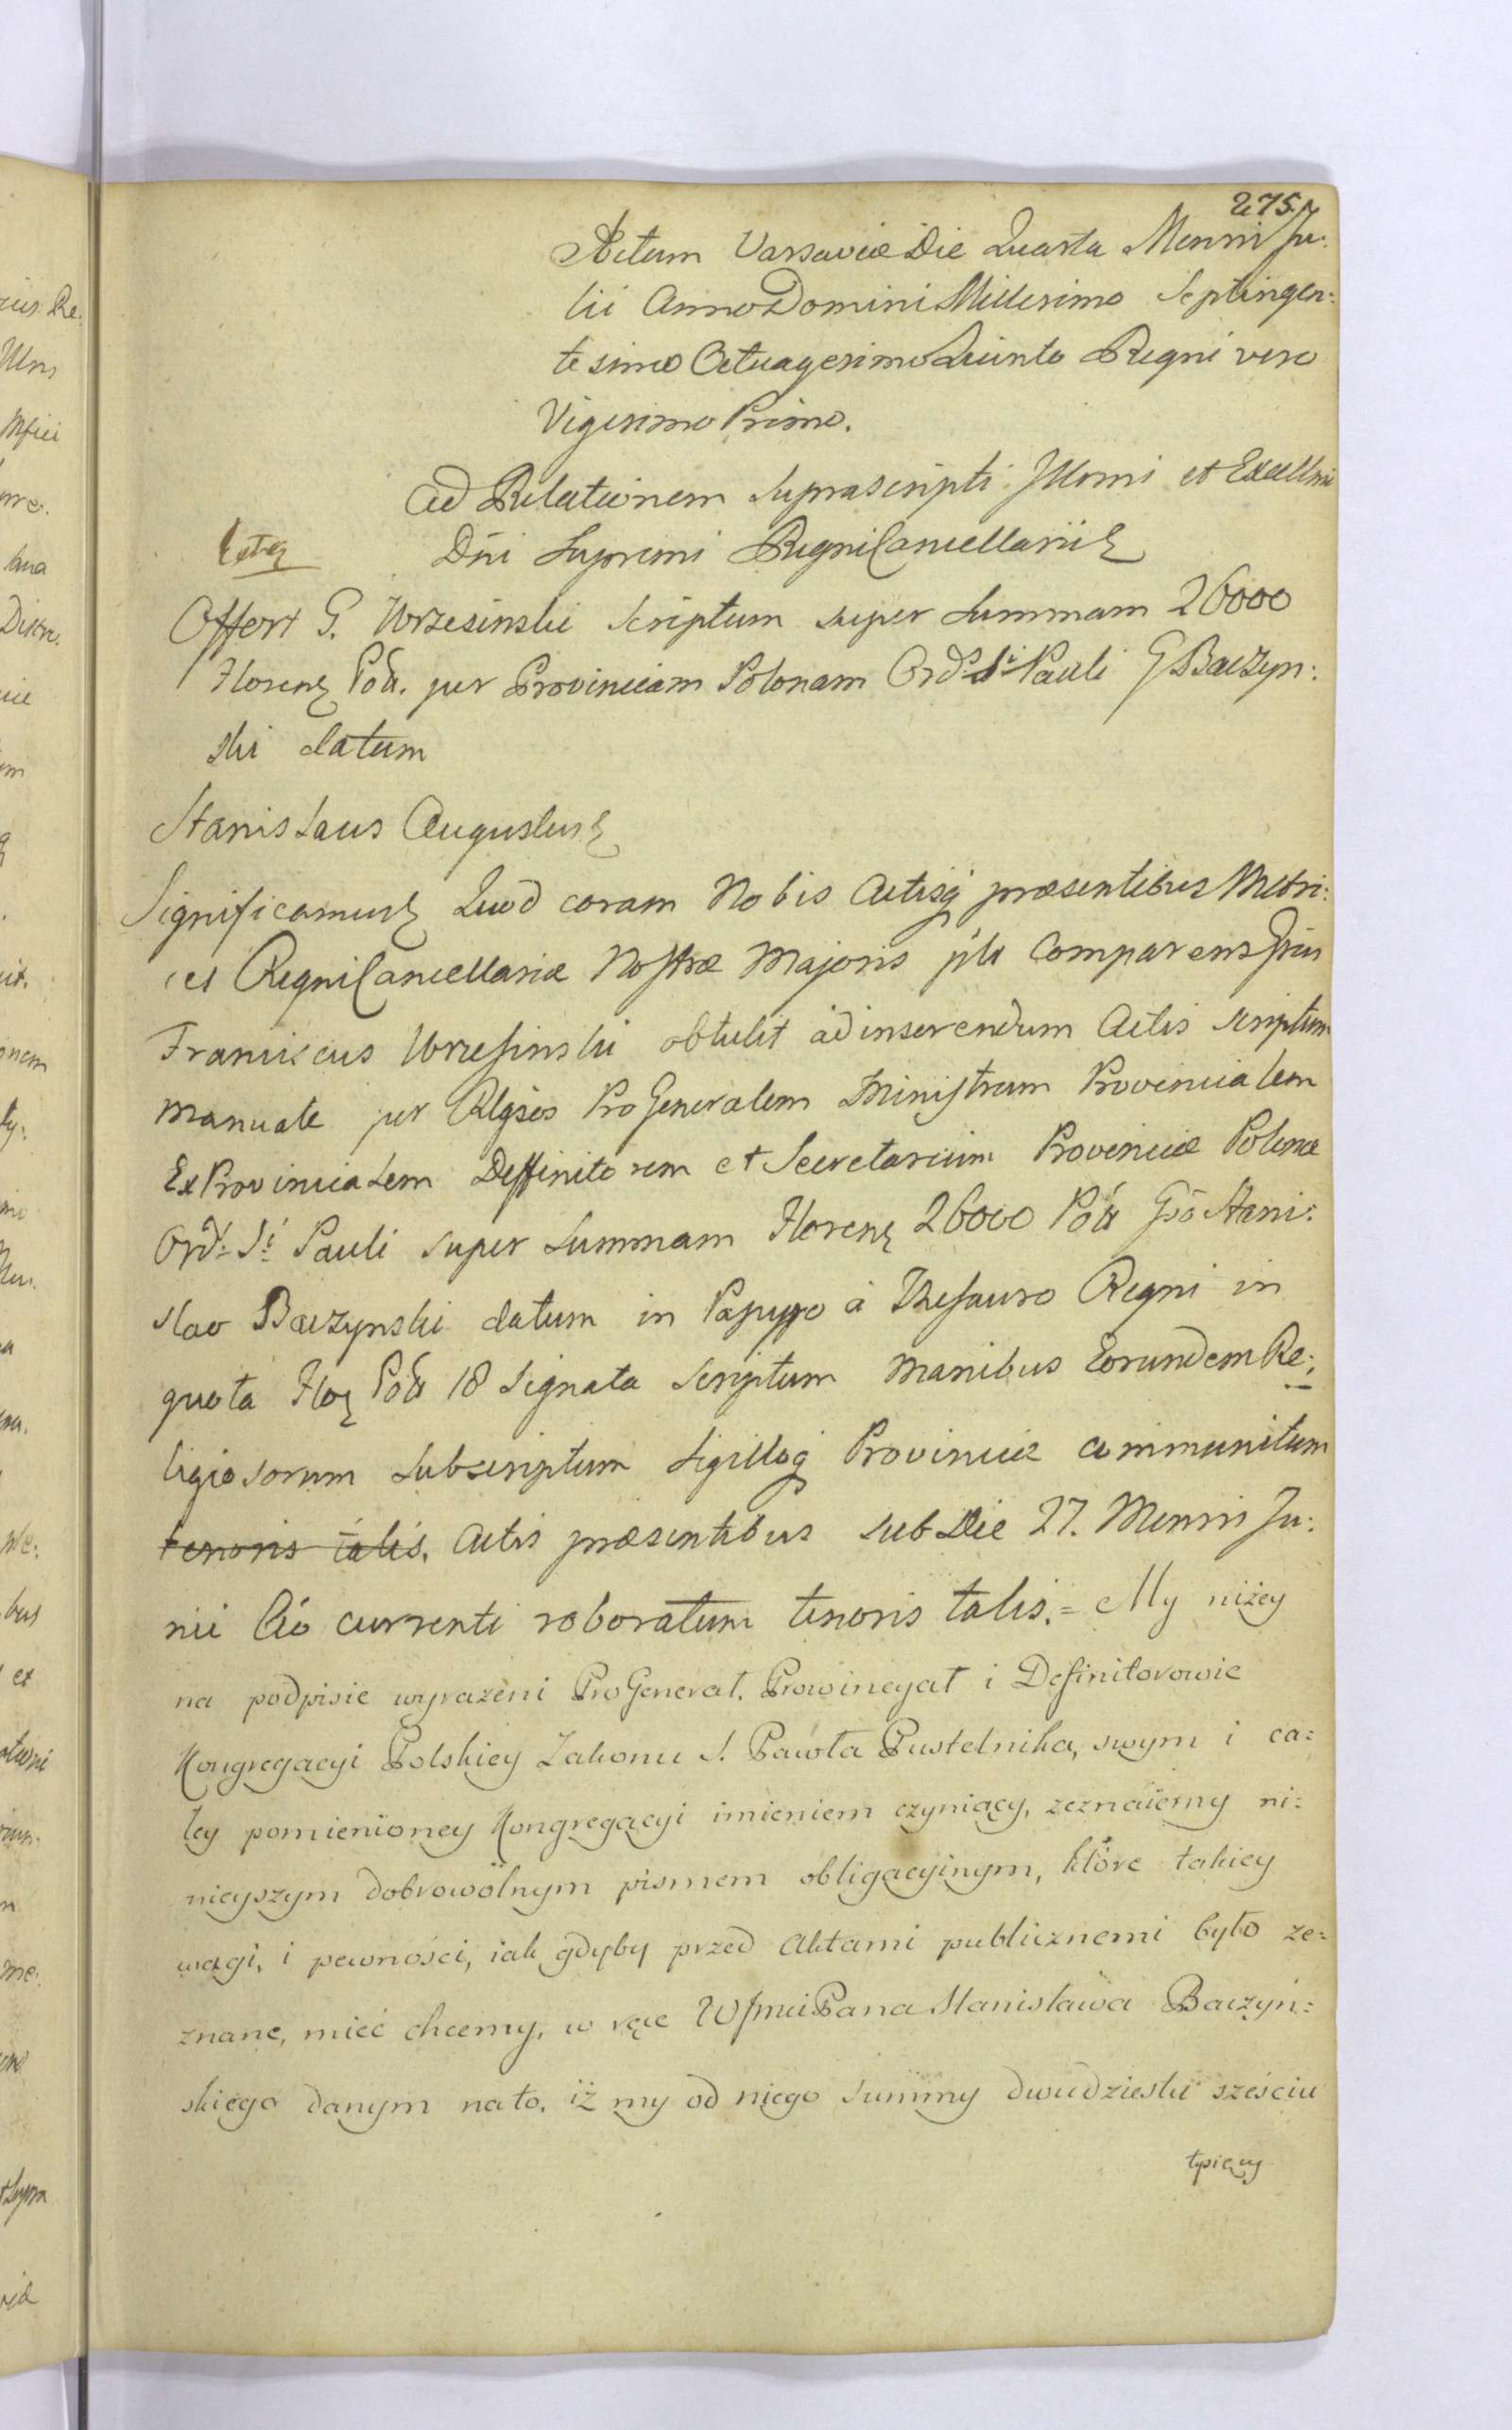 275.
Actum Varsaviæ Die Quarta Mensis Ju:
lii Anno Domini Millesimo Septingen:
tesimo Octuagesimo Quinto Regni vero
Vigesimo Primo.
Ad Relationem suprascripti Illmi et Excellmi
Dni Supremi Regni Cancellarii
Offert G. Wrzesinski scriptum super Summam 26000
Floren Pol. per Provinciam Polonam Ord. S. Pauli G Baczyn:
ski datum
Stanislaus Augustus
Significamus Quod coram Nobis Actisq præsentibus Metri:
ces Regni Cancellariæ Nostræ Majoris plr Comparens
Franciscus Wrzesinski obtulit ad inserendum Actis scriptum
Manuale per Rlgsos Pro Generalem Ministrum Provincialem
Ex Provincialem Deffinitorem et Secretarium Provinciæ Polonæ
Ord: Si Pauli super Summam Floren 26000 Pol Gso Stani:
slao Baczynski datum in Papyro à Thesauro Regni in
quota Flo Pol 18 Signata scriptum Manibus Eorundem Re:
ligiosorum Subscriptum Sigilloq Provinciæ communitum
tenoris talis. Actis præsentibus sub Die 27. Mensis Ju:
nii Ao currenti roboratum tenoris talis.= My niżey
na podpisie wyrażeni ProGenerał. Prowincyał i Definitorowie
Kongregacyi Polskiey Zakonu S. Pawła Pustelnika, swym i ca=
łey pomienioney Kongregacyi imieniem czyniący, zeznaiemy ni=
nieyszym dobrowolnym pismem obligacyinym, które takiey
wagi, i pewności, iak gdyby przed Aktami publicznemi było ze=
znane, mieć chcemy, w ręce WJmci Pana Stanisława Baczyń=
skiego danym na to, iż my od niego Summy dwudziestu sześciu
tysięcy